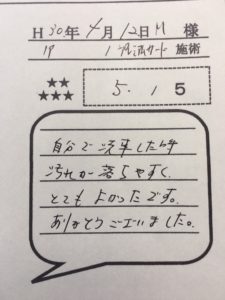 H30年4月12日 M 様
1P 施術
★★
★★★
5.15
自分で洗車した時
汚れが落ちやすく、
とてもよかったです。
ありがとうございました。